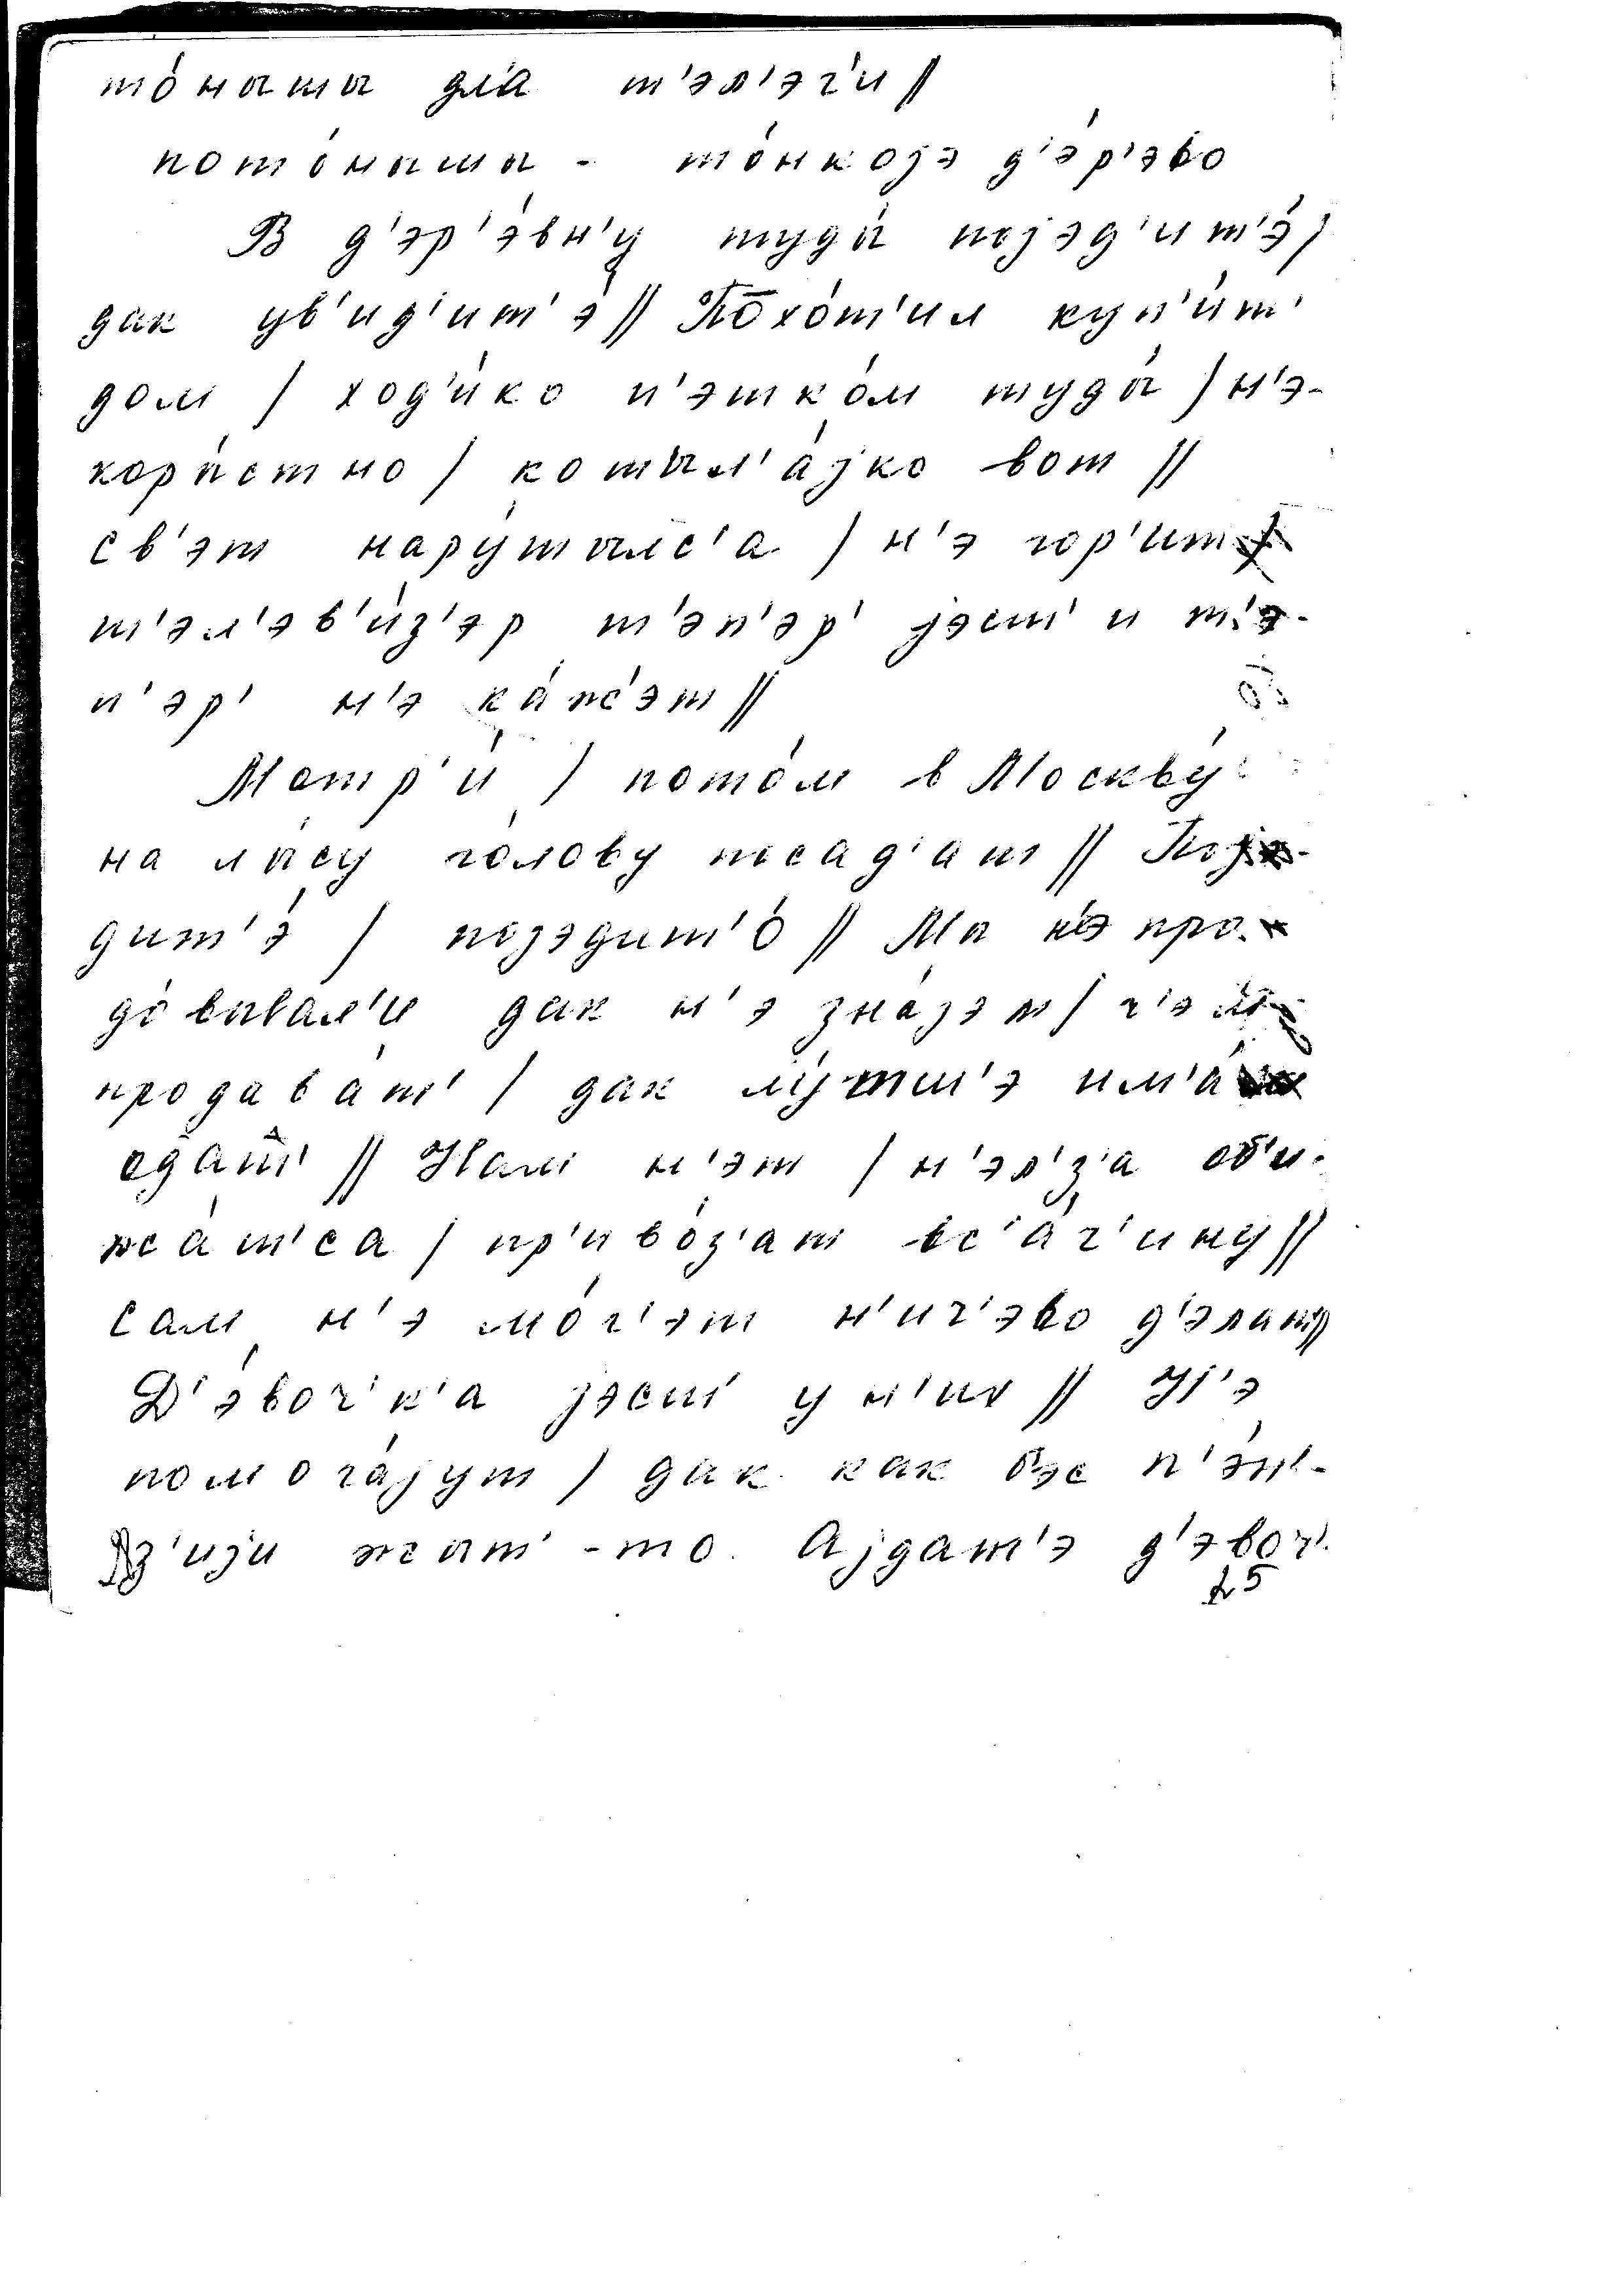 то́нышы дл'а т'эл'э́г'и //
пото́ныши - то́нкојэ д'э́р'эво
В д'эр'э́вн'у туды́ појэд'ит'э́ /
дак ув'ид'ит'э́ // Похо́т'ил куп'и́т'
дом / ход'и́ко п'эшко́м туды́ / н'э-
коры́стно / котыл'а́јко вот //
св'эт нару́шылс'а / н'э гор'ит
т'эл'эв'и́з'эр т'эп'эр' јэст' и т'э-
п'эр' н'э ка́ж'эт //
Мотр'и́ / пото́м в Москву́
на лы́су го́лову посад'ат //
дит'э́ / појэдит'о́ // Мы н'э про-
до́вывал'и дак н'э зна́јэм /
продава́т' / дак лу́тш'э им'а́
одат' // Нам н'эт / н'эл'з'а об'и-
жа́т'са / пр'иво́з'ат вс'а́ч'ину //
сам н'э мо́г'эт н'ич'эво д'элат' //
Д'э́воч'к'а јэст' у н'их // Н'э
помога́јут / дак как бэс п'э́н'-
з'ији жыт' -то. Ајдат'э д'эвоч'.
25